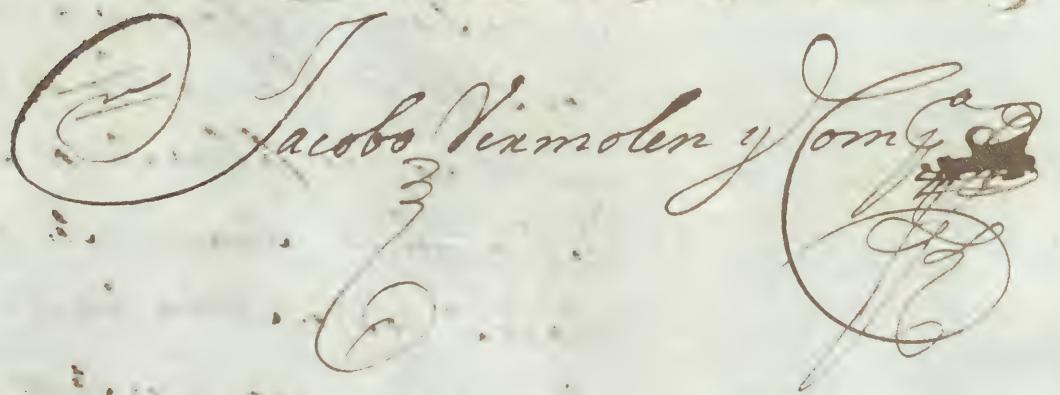 Jacobo Vermolen y Comp.ª